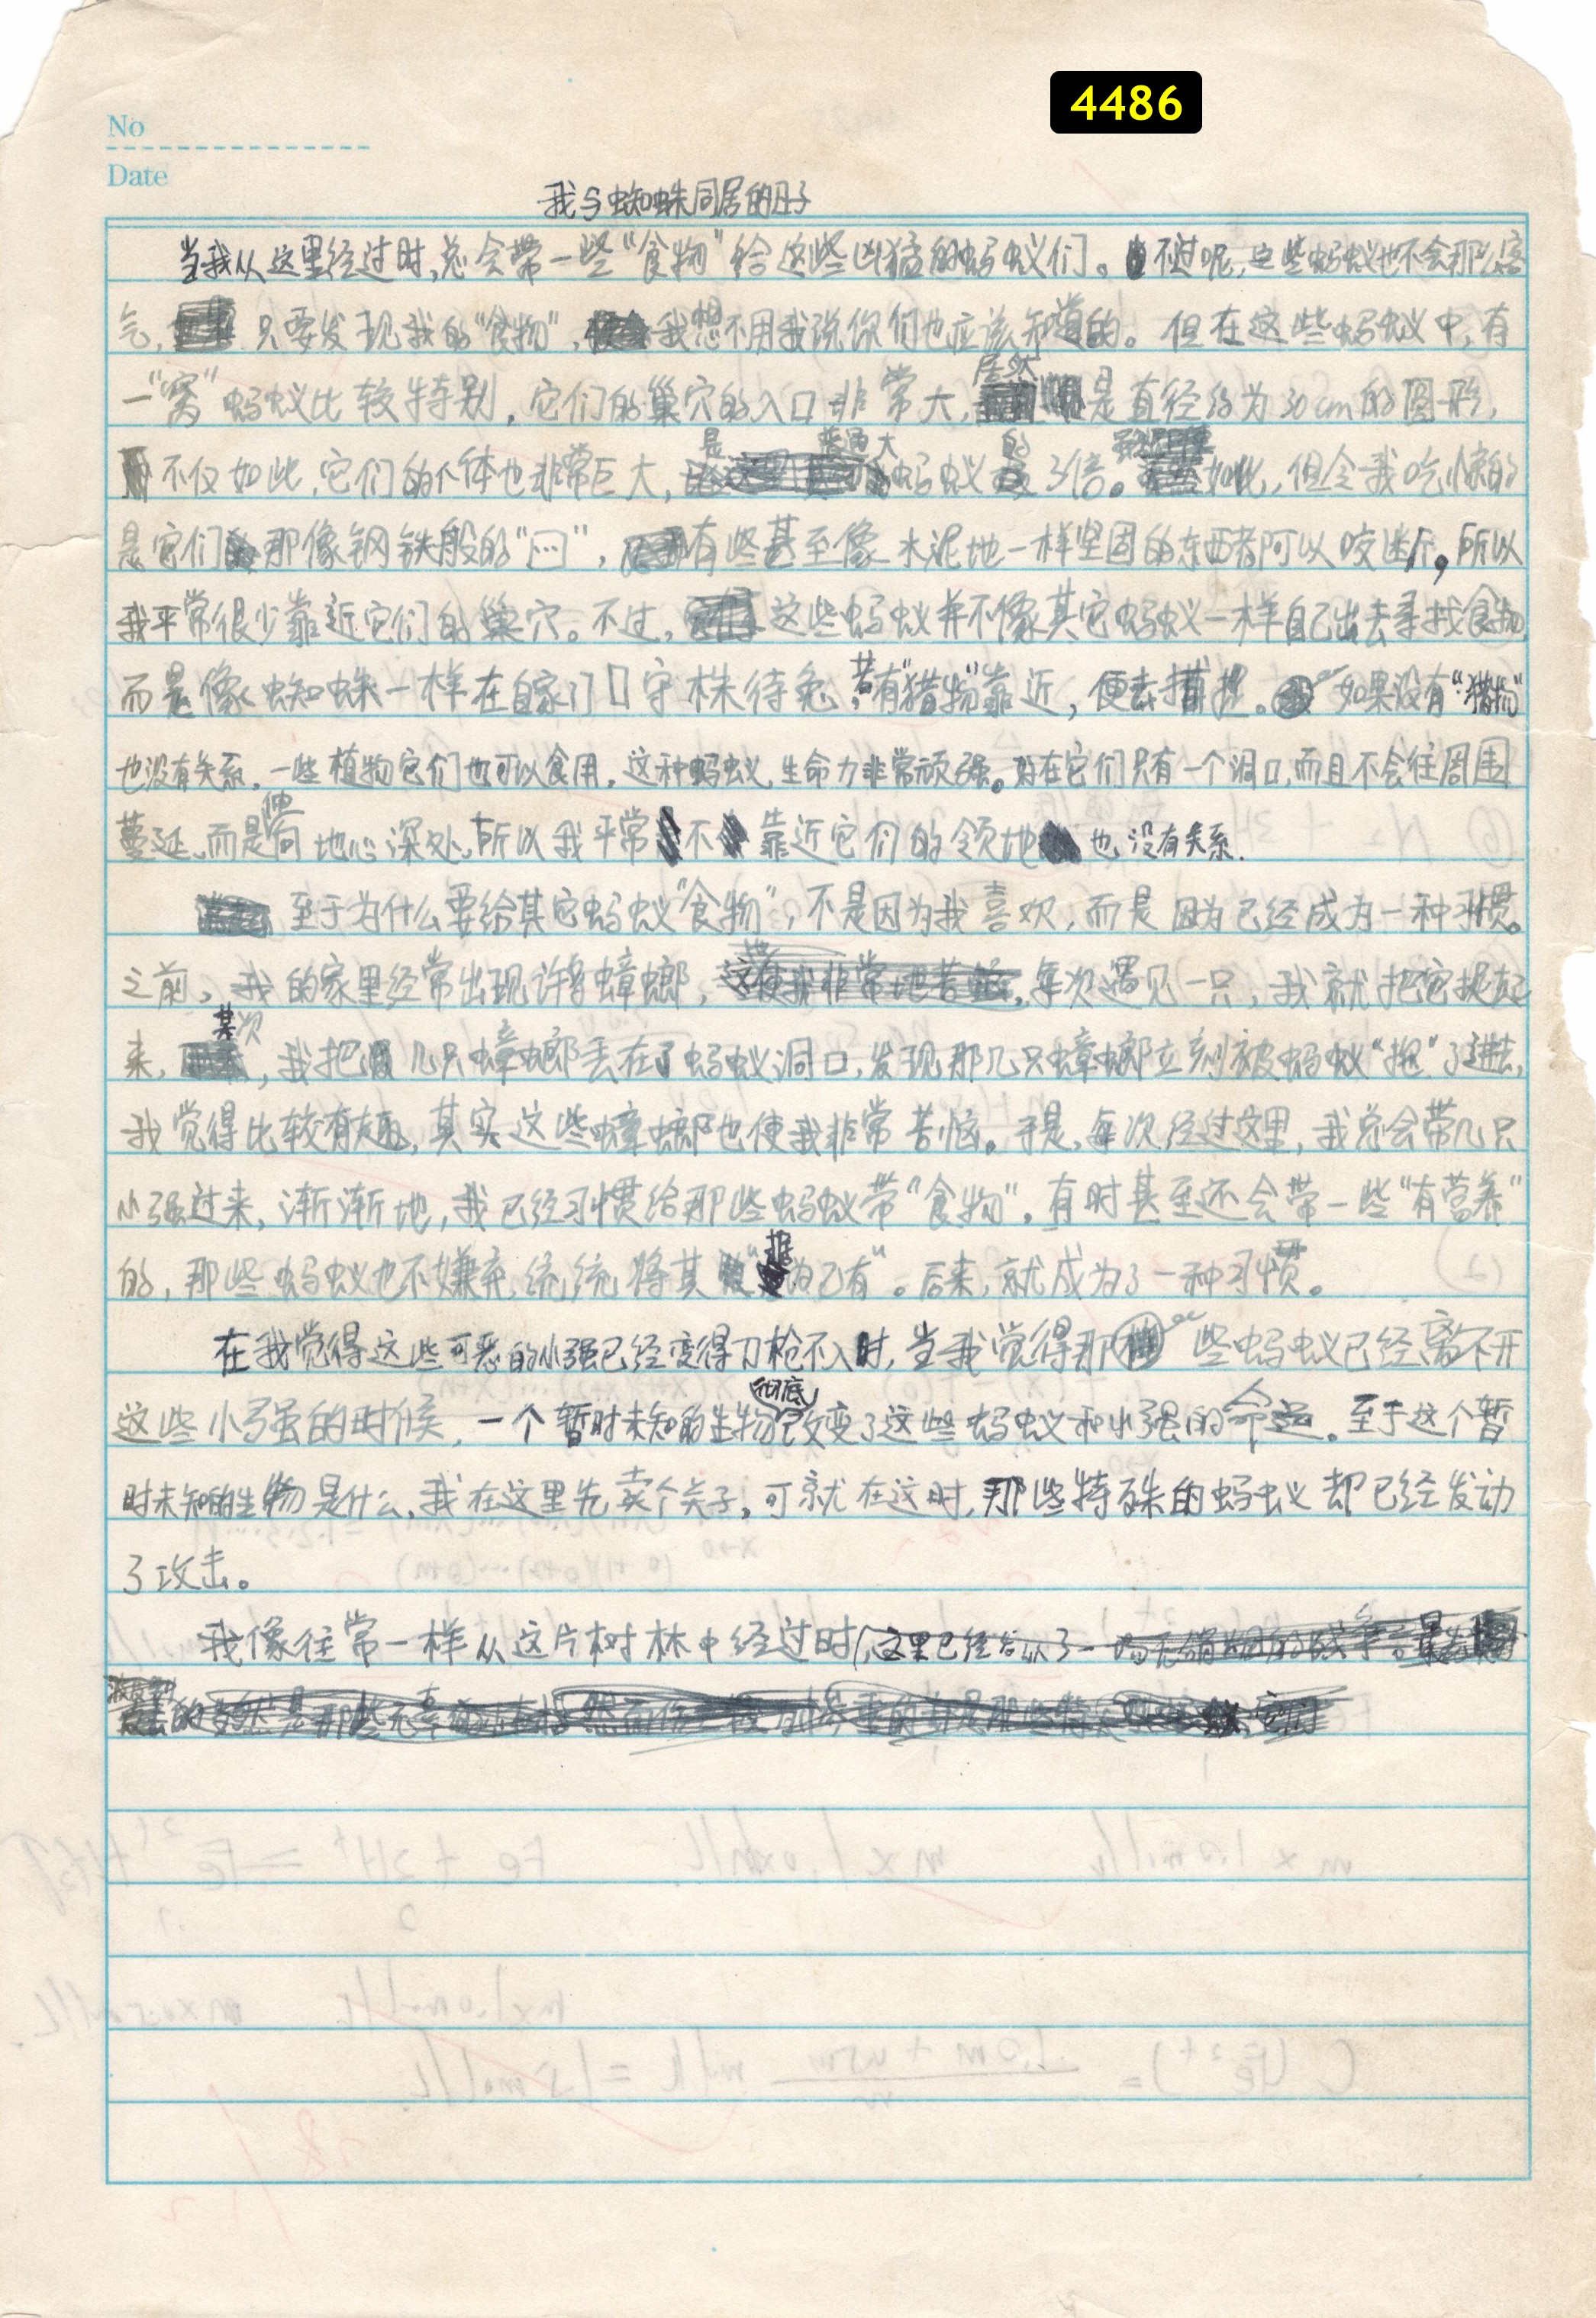 4486
No
Date
我与蜘蛛同居的日子
当我从这里经过时,总会带一些“食物”给这些凶猛的蚂蚁们。不过呢,这些蚂蚁也不会那么客
气,只要发现我的“食物”,我想不用我说你们也应该知道的。但在这些蚂蚁中,有
一“窝”蚂蚁比较特别,它们的巢穴的入口非常大,居然是直径约为30cm的圆形,
不仅如此,它们的个体也非常巨大,是普通大蚂蚁的3倍。如此,但令我吃惊的
是它们那像钢铁般的“口”,有些甚至像水泥地一样坚固的东西都可以咬断,所以
我平常很少靠近它们的巢穴。不过,这些蚂蚁并不像其它蚂蚁一样自己出去寻找食物,
而是像蜘蛛一样在自家门口守株待兔,若有“猎物”靠近,便去捕捉。如果没有“猎物”
也没有关系,一些植物它们也可以食用,这种蚂蚁,生命力非常顽强。好在它们只有一个洞口,而且不会往周围
蔓延,而是伸向地心深处,所以我平常不靠近它们的领地也没有关系.
至于为什么要给其它蚂蚁“食物”,不是因为我喜欢,而是因为已经成为一种习惯。
之前,我的家里经常出现许多蟑螂,每次遇见一只,我就把它捉起
来,某次,我把几只蟑螂丢在了蚂蚁洞口,发现那几只蟑螂立刻被蚂蚁“拖”了进去,
我觉得比较有趣,其实这些蟑螂也使我非常苦恼。于是,每次经过这里,我总会带几只
小强过来,渐渐地,我已经习惯给那些蚂蚁带“食物”,有时甚至还会带一些“有营养”
的,那些蚂蚁也不嫌弃,统统将其“据为己有”。后来,就成为了一种习惯。
在我觉得这些可恶的小强已经变得刀枪不入时,当我觉得那些蚂蚁已经离不开
这些小强的时候,一个暂时未知的生物彻底改变了这些蚂蚁和小强的命运。至于这个暂
时未知的生物是什么,我在这里先卖个关子,可就在这时,那些特殊的蚂蚁却已经发动
了攻击。
我像往常一样从这片树林中经过时,